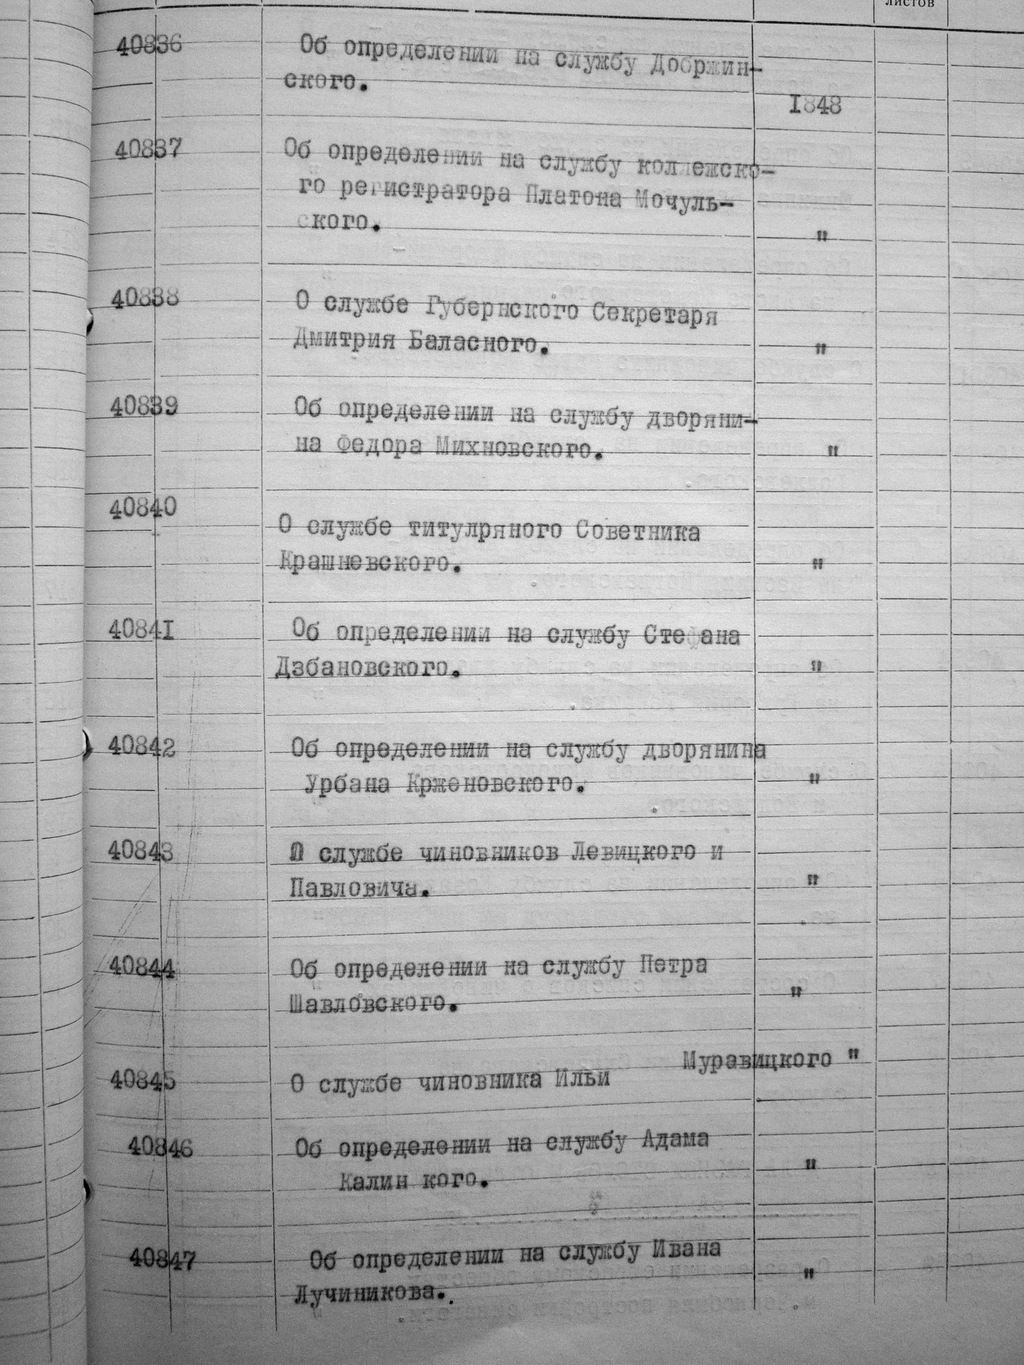 листов
40836 Об определении на службу Добржин-
ского.
1848
40837 Об определении на службу коллежско-
го регистратора Платона Мочуль-
ского. "
40838 О службе Губернского Секретаря
Дмитрия Баласного. "
40839 Об определении на службу дворяни-
на Федора Михновского. "
40840
О службе титулряного Советника
Крашневского. "
40841 Об определении на службу Стефана
Дзбановского. "
40842 Об определении на службу дворянина
Урбана Крженовского. "
40843 О службе чиновников Левицкого и
Павловича. "
40844 Об определении на службу Петра
Шавловского. "
40845 О службе чиновника Ильи Муравицкого "
40846 Об определении на службу Адама
Калин кого. "
40847 Об определении на службу Ивана
Лучиникова. "